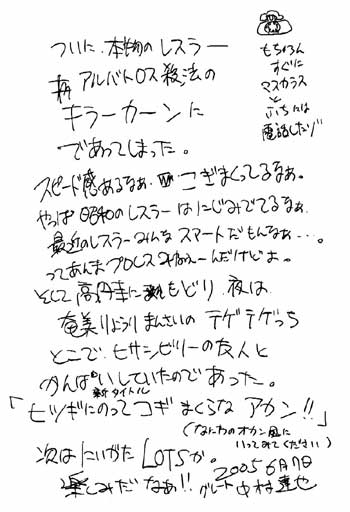 ついに、本物のレスラー
アルバトロス殺法の
キラーカーンに
であってしまった。
もちろん
すぐに
マスカラス
と
ふちには
電話したゾ
スピード感あるなぁ、こぎまくってるなぁ。
やっぱ昭和のレスラーはにじみでてるなぁ
最近のレスラーみんなスマートだもんなぁ…。
ってあんまプロレスみねぇーんだけどよ。
そして高円寺にもどり、夜は
奄美りょうりまんさいのテゲテゲっち
とこで、ヒサシビリーの友人と
かんぱいしていたのであった。
新タイトル
「ヒツギにのってコギまくらなアカン!!」
(なにわのオカン風に
いってみてください)
次はにいがたLOTSか。
楽しみだなぁ!!
2005 6月7日
グレート中村達也